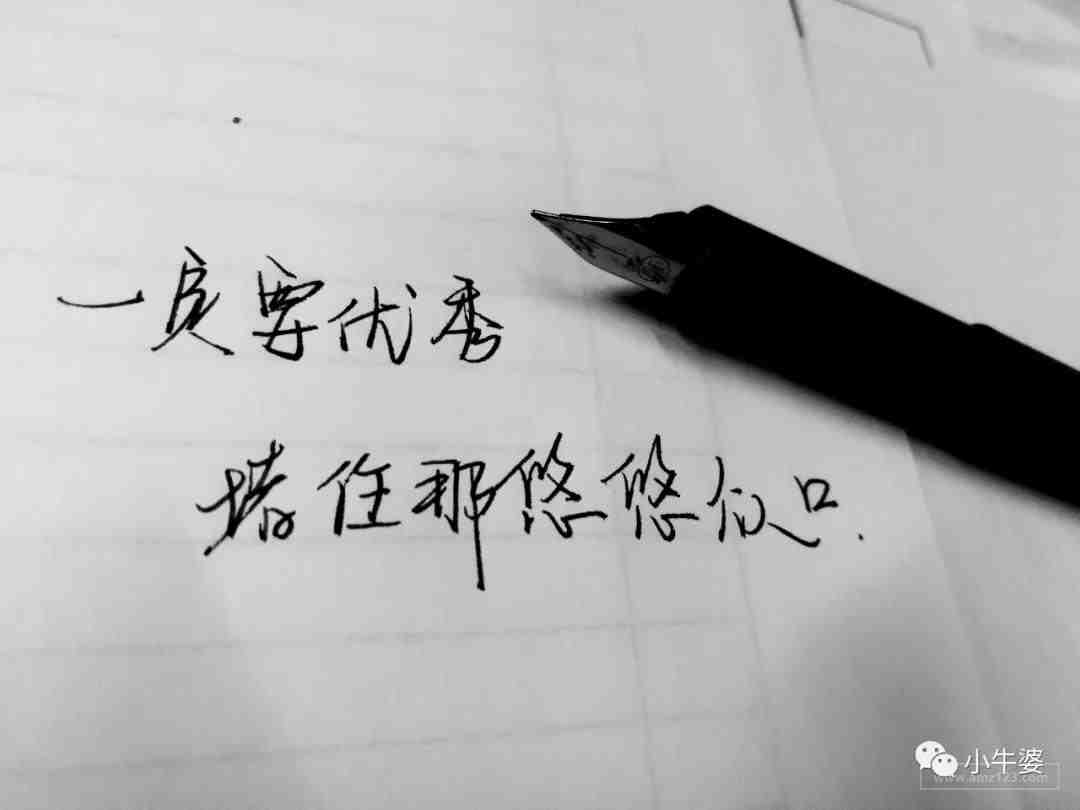 一定要优秀
堵住那悠悠众口.
小牛婆
www.amz123.com